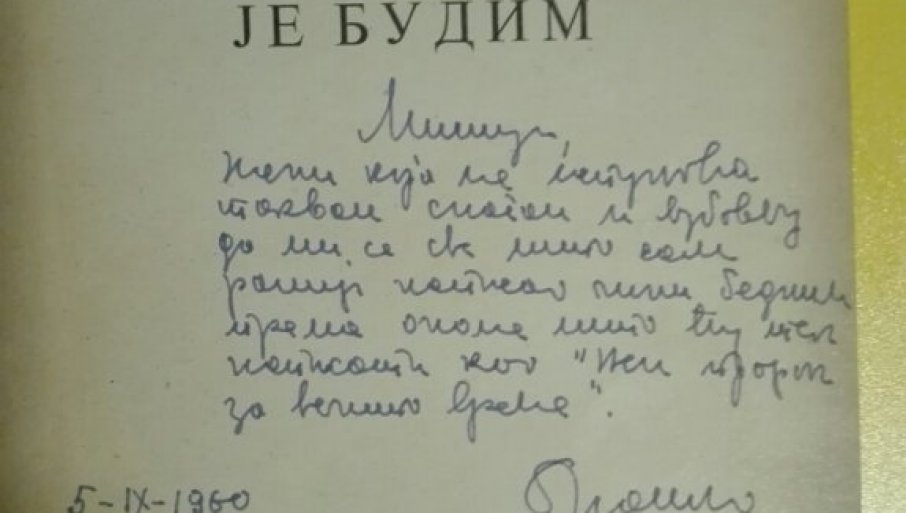 ЈЕ БУДИМ
Мишици,
жени која ме испуњава
таквом снагом и љубављу
да ми се све што сам
раније написао чини бедним
према ономе што ћу тек
написати као "Њен пророк
за вечито време".
5-IX-1960
Бранко